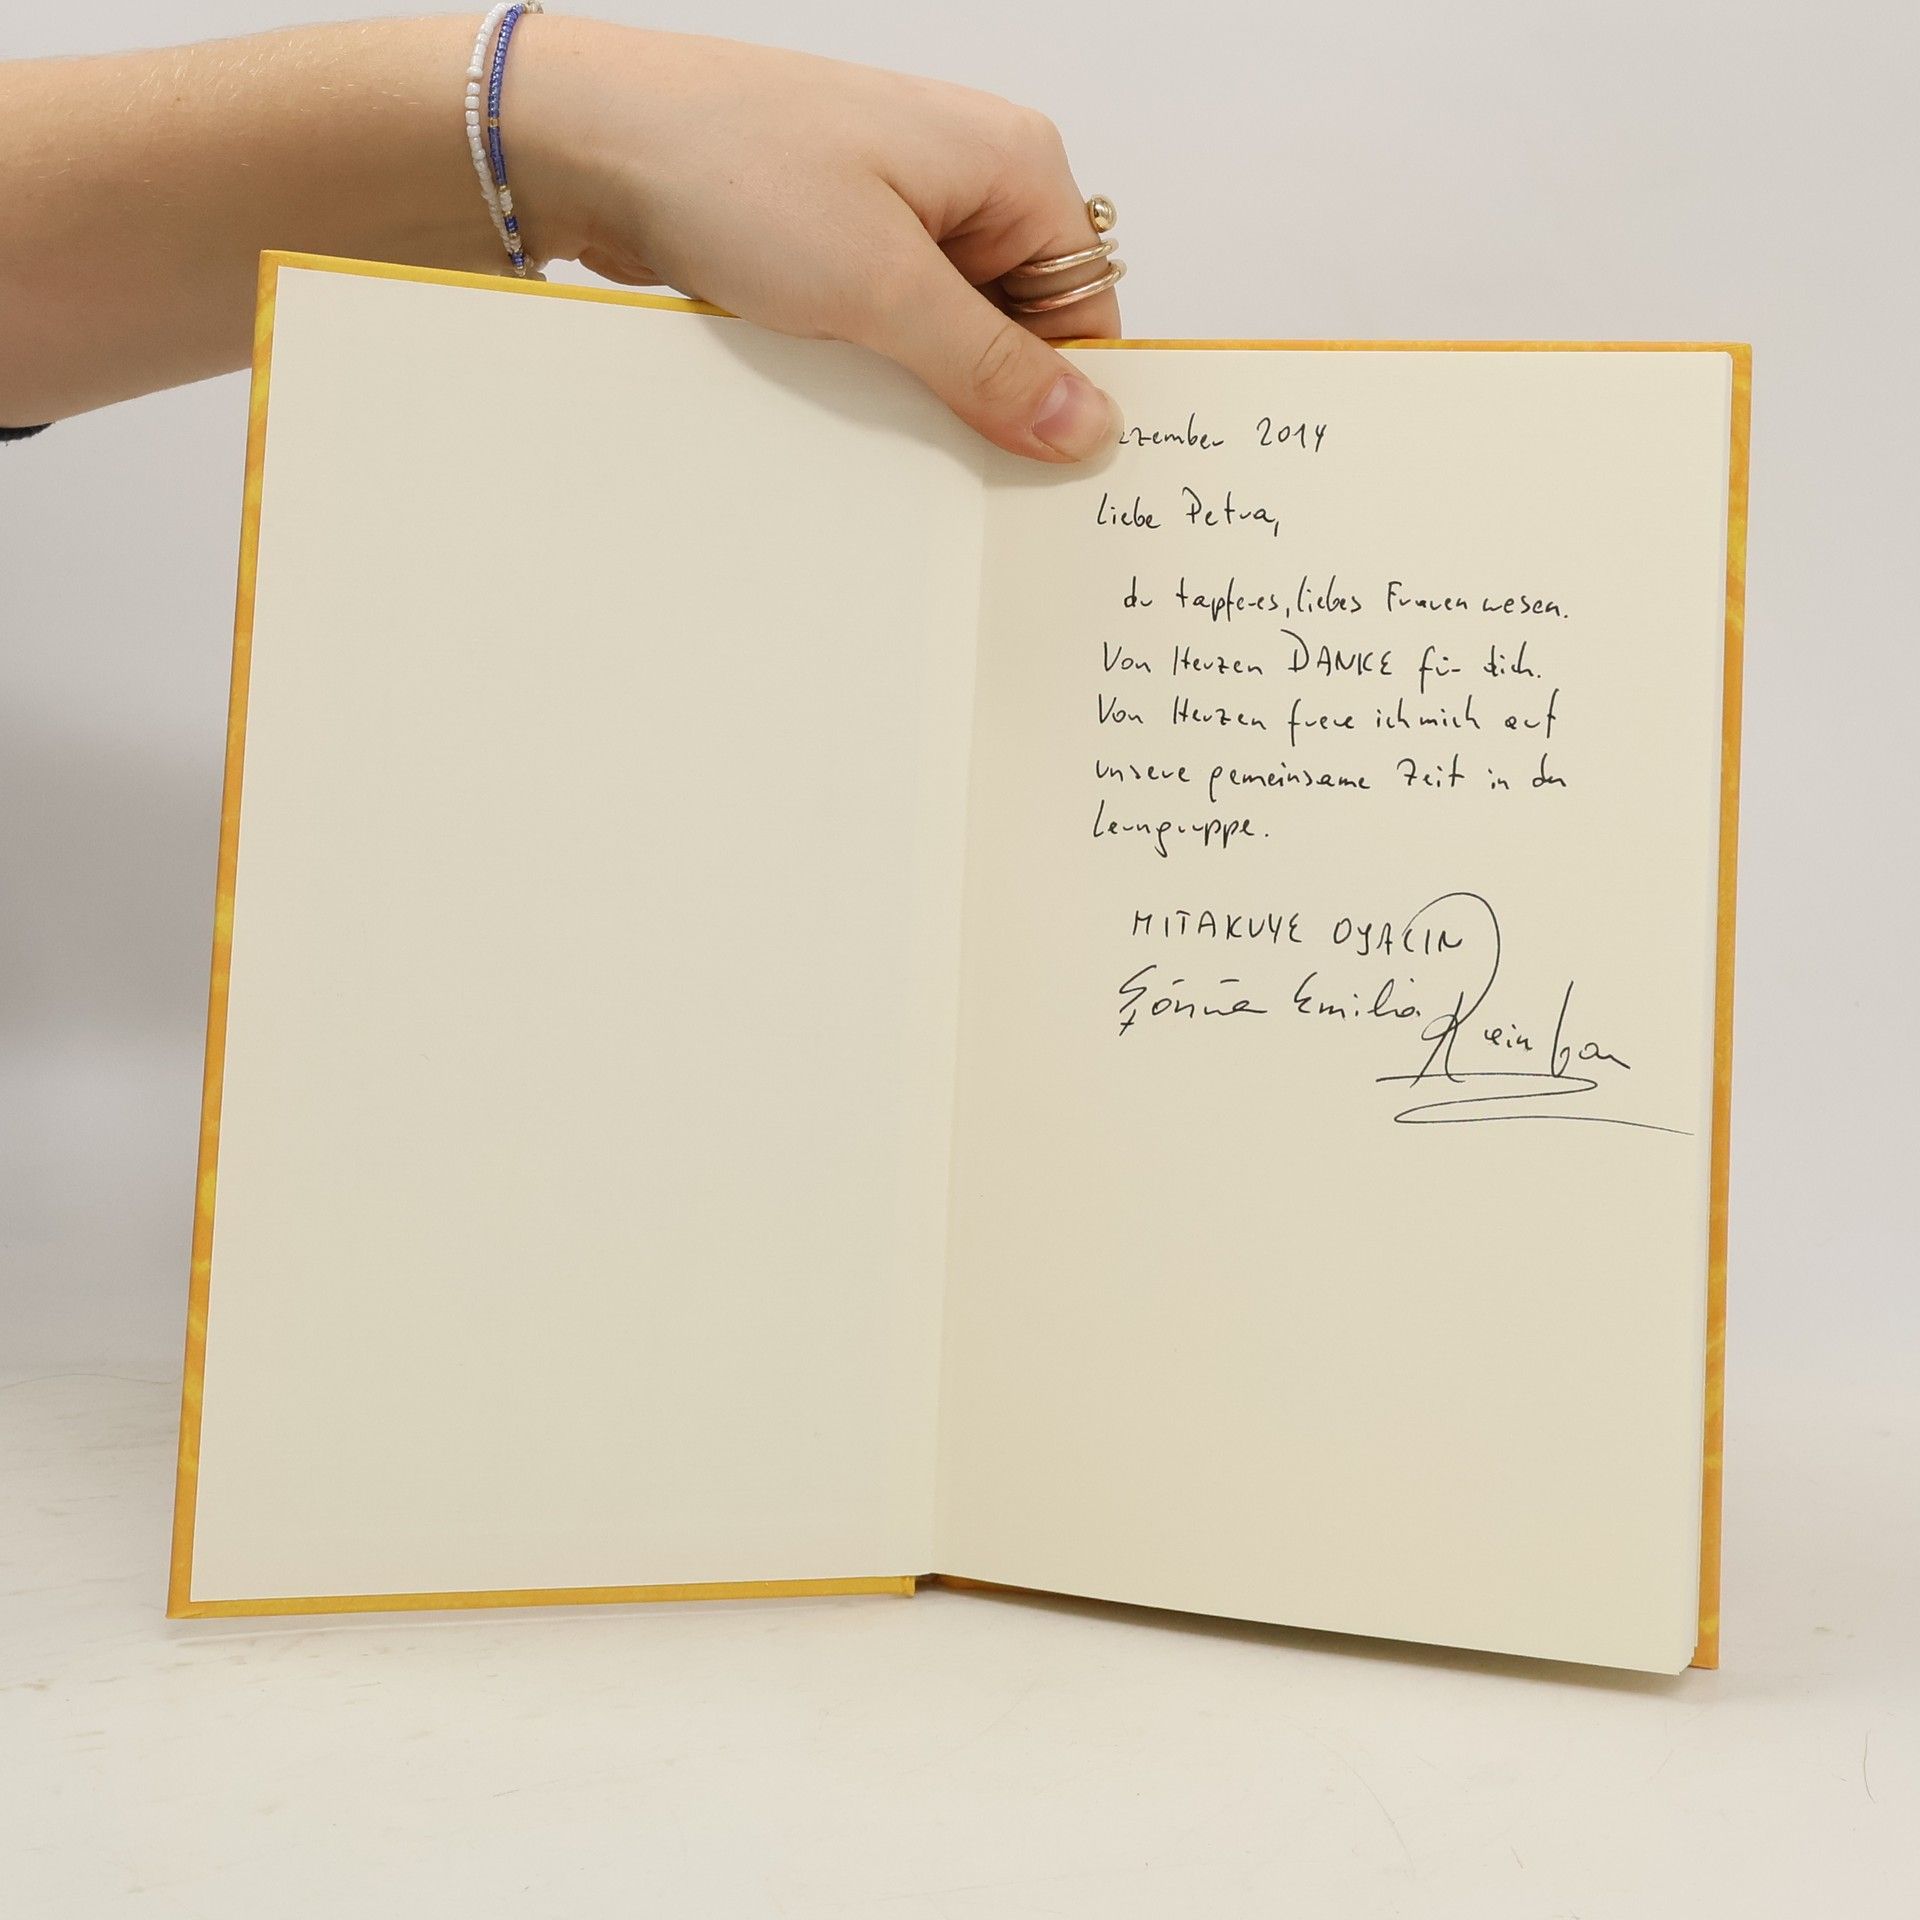 ezember 2014
Liebe Petra,
du tapferes, liebes Frauenwesen.
Von Herzen DANKE für dich.
Von Herzen freue ich mich auf
unsere gemeinsame Zeit in der
Lerngruppe.
MITAKUYE OYACIN
Emilia